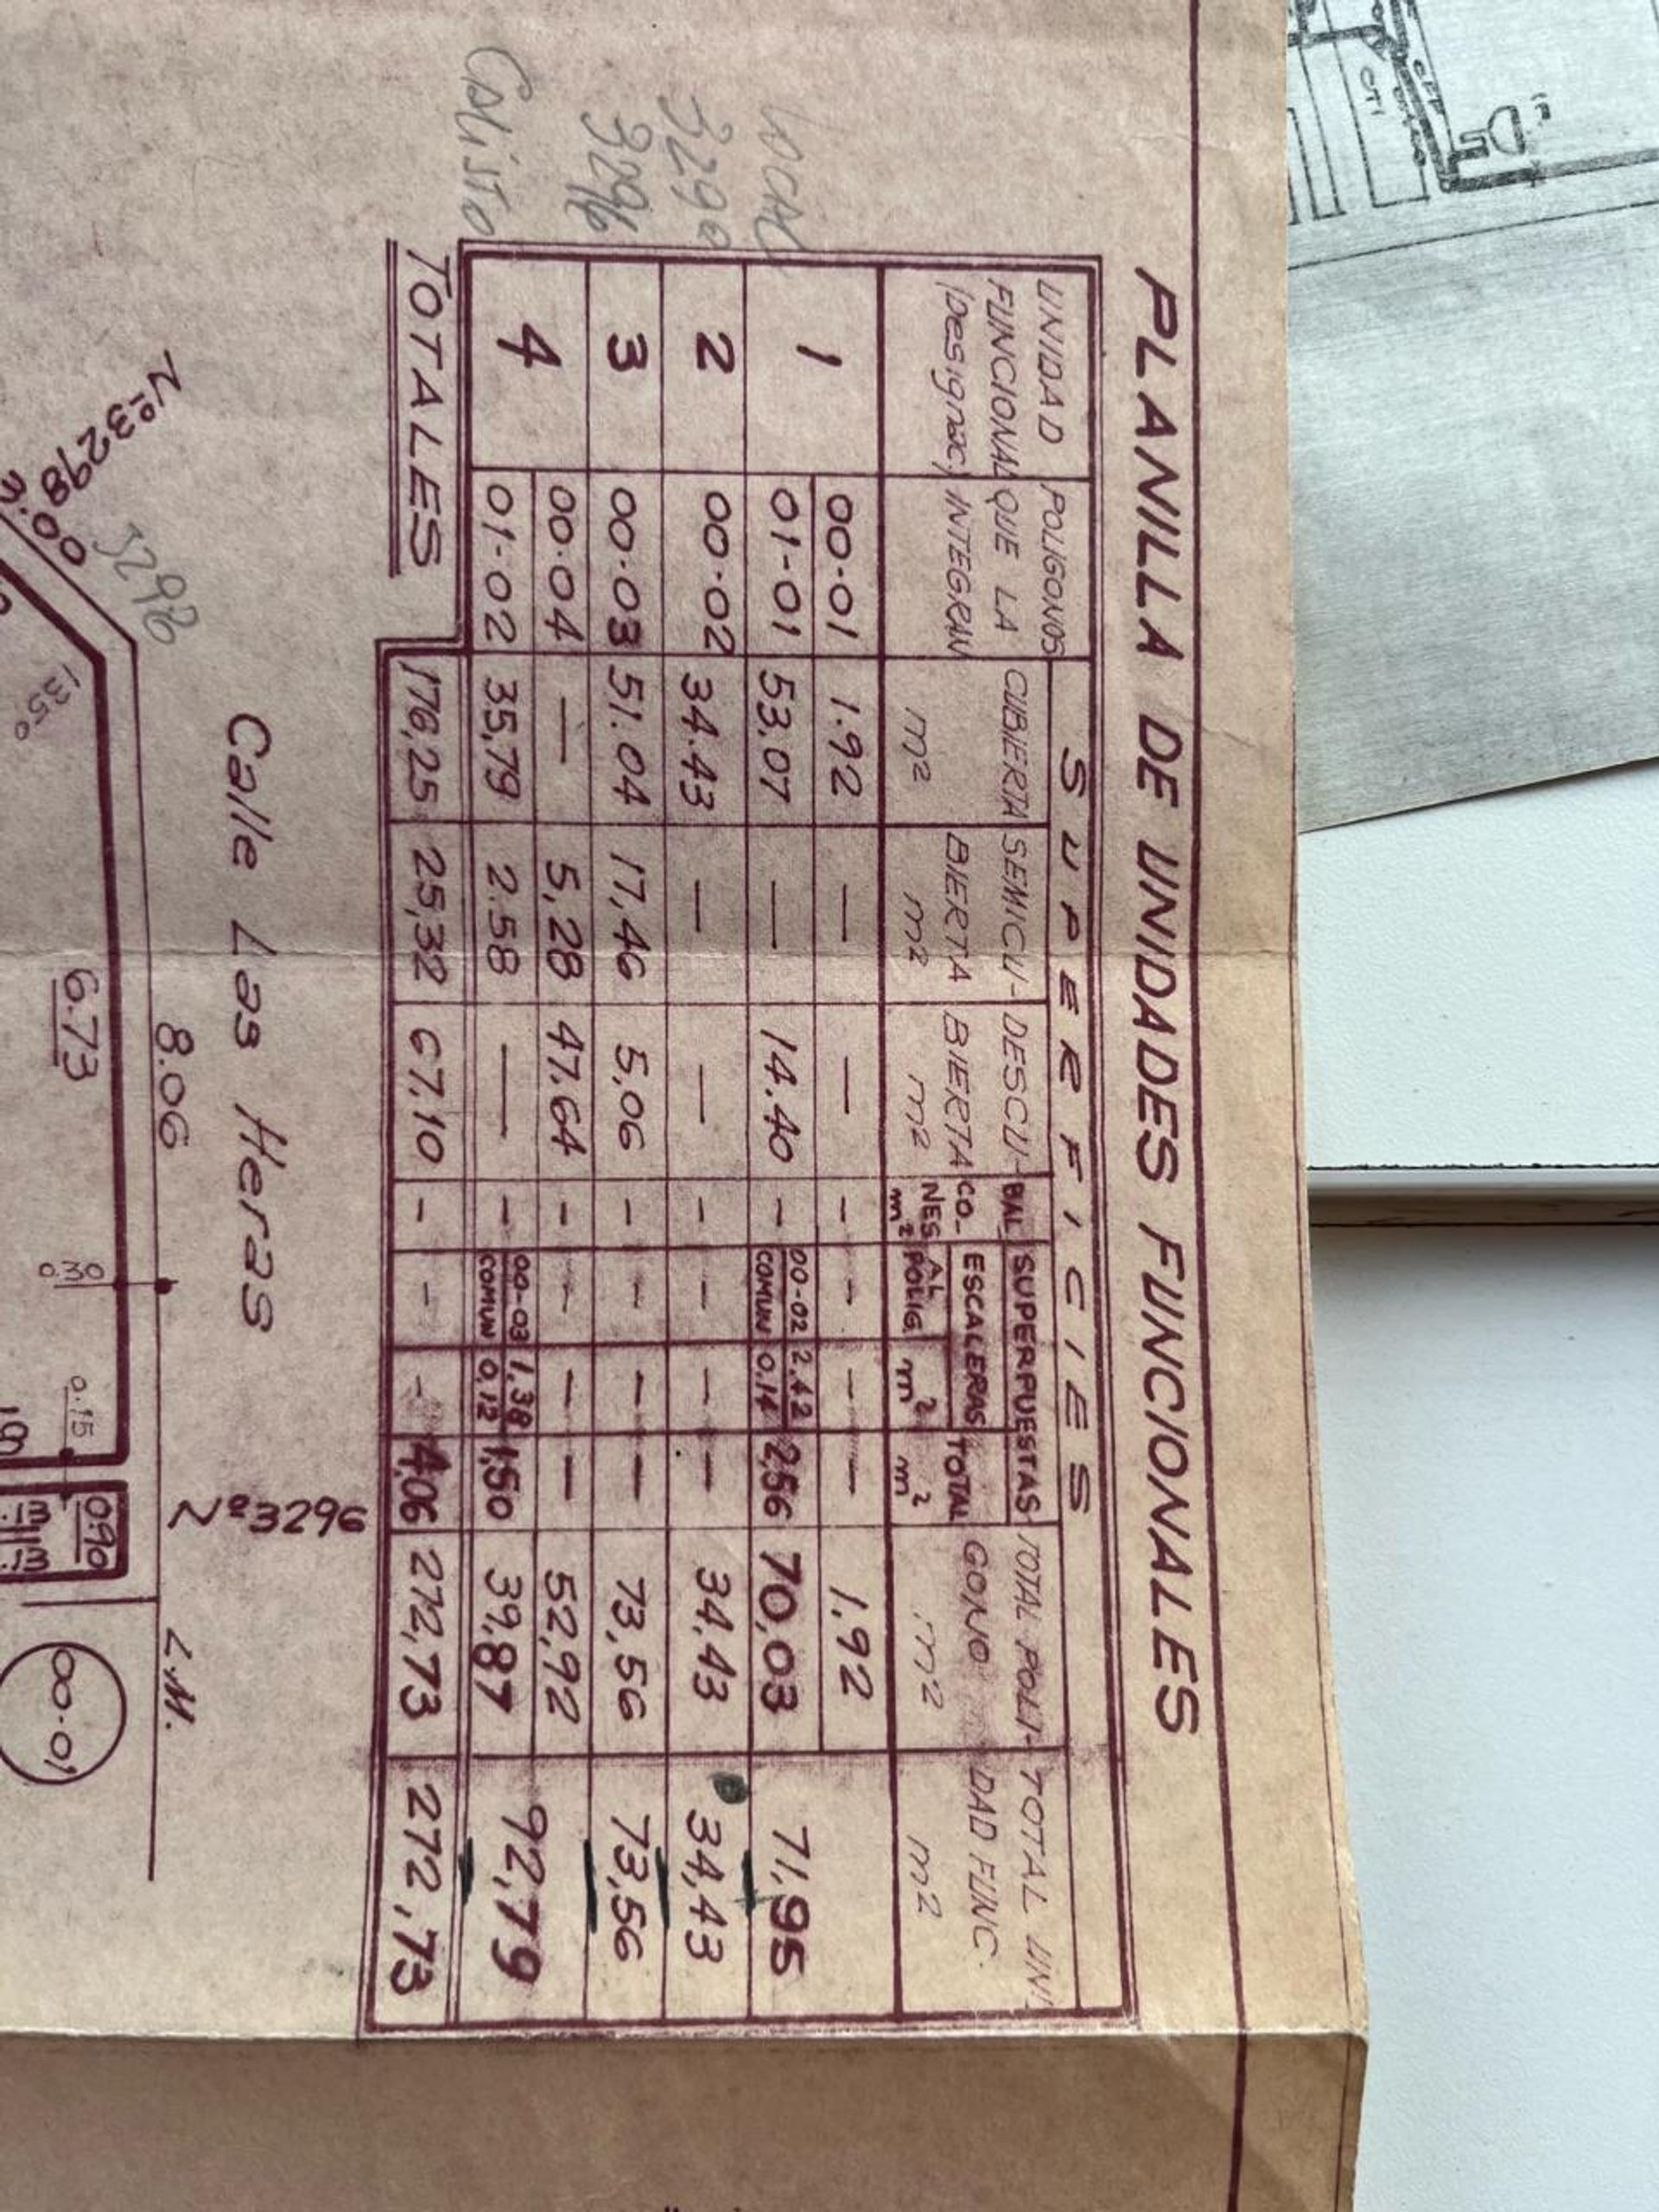 PLANILLA DE UNIDADES FUNCIONALES
UNIDAD FUNCIONAL (Designac.) POLIGONOS QUE LA INTEGRAN SUPERFICIES
CUBIERTA m² SEMICU-BIERTA m² DESCU-BIERTA m² BAL CO-NES m² SUPERPUESTAS TOTAL POLI-GONO m² TOTAL UNI-DAD FUNC. m²
ESCALERAS TOTAL m²
AL POLIG. m²
1 00-01 1.92 — — - - — — 1,92 71,95
LOCAL 01-01 53,07 — 14.40 - 00-02 2,42 COMUN 0,14 2,56 70,03
2 00-02 34.43 — — - - - - 34,43 34,43
3296 3 00-03 51.04 17,46 5,06 - - - - 73,56 73,56
4 00-04 — 5,28 47,64 - - - - 52,92 92,79
01-02 35,79 2.58 — - 00-03 1,38 COMUN 0,12 1,50 39,87
TOTALES 176,25 25,32 67,10 - - - 4,06 272,73 272,73
Calle Las Heras
Nº3296
Nº3298
8.06
L.M.
6.73
0.30
0.15
0.90
135º
.13
.13
00-01